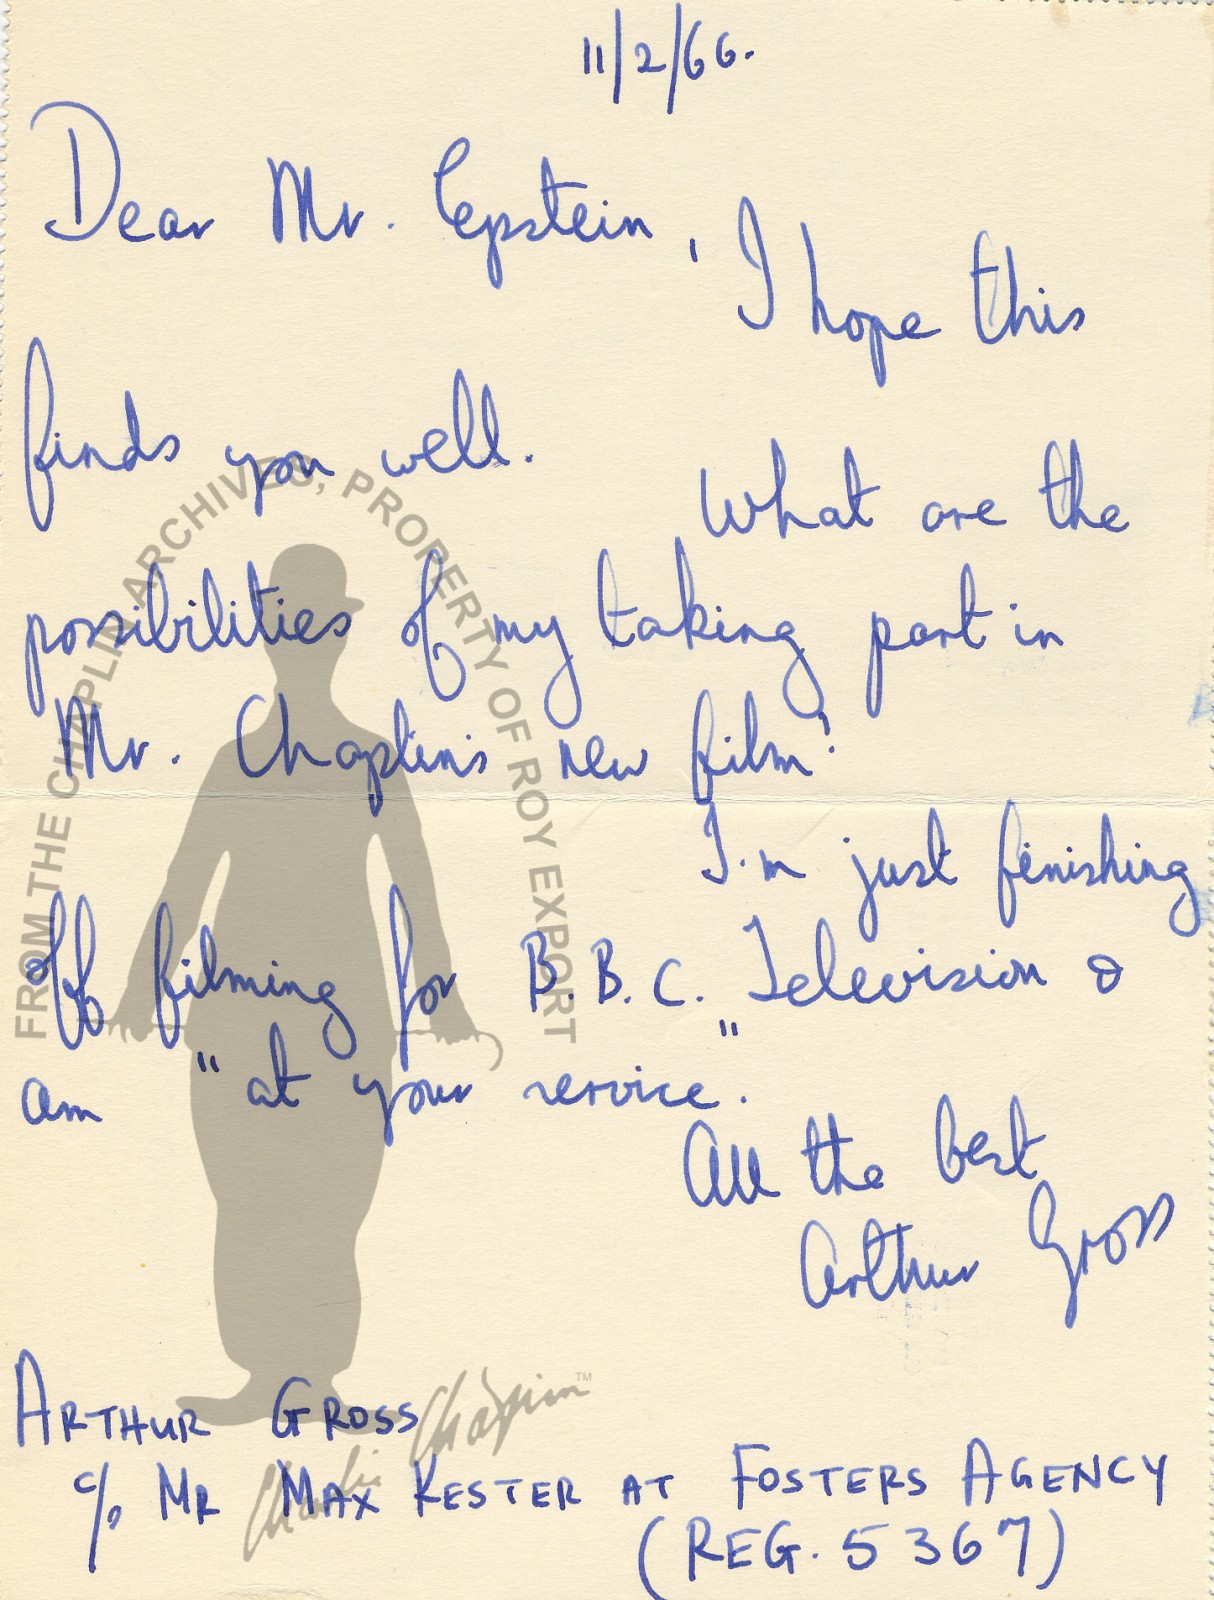 11/2/66.
Dear Mr. Epstein,
I hope this
finds you well.
What are the
possibilities of my taking part in
Mr. Chaplin's new film?
I'm just finishing
off filming for B.B.C. Television &
am "at your service".
All the best
Arthur Gross
ARTHUR GROSS
c/o MR MAX KESTER AT FOSTERS AGENCY
(REG. 5367)
FROM THE CHAPLIN ARCHIVES, PROPERTY OF ROY EXPORT
Charlie Chaplin™